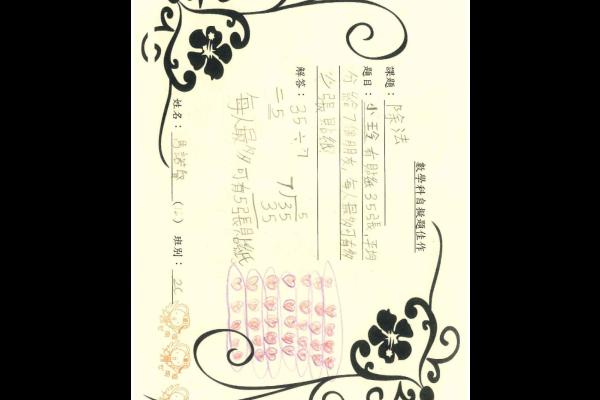 數學科自擬題佳作
課題：除法
題目：小玲有貼紙35張,平均
分給7個朋友,每人最多可有多
少張貼紙
解答：35÷7
=5
5
7)35
35
每人最多可有5張貼紙
姓名： 班別：2C